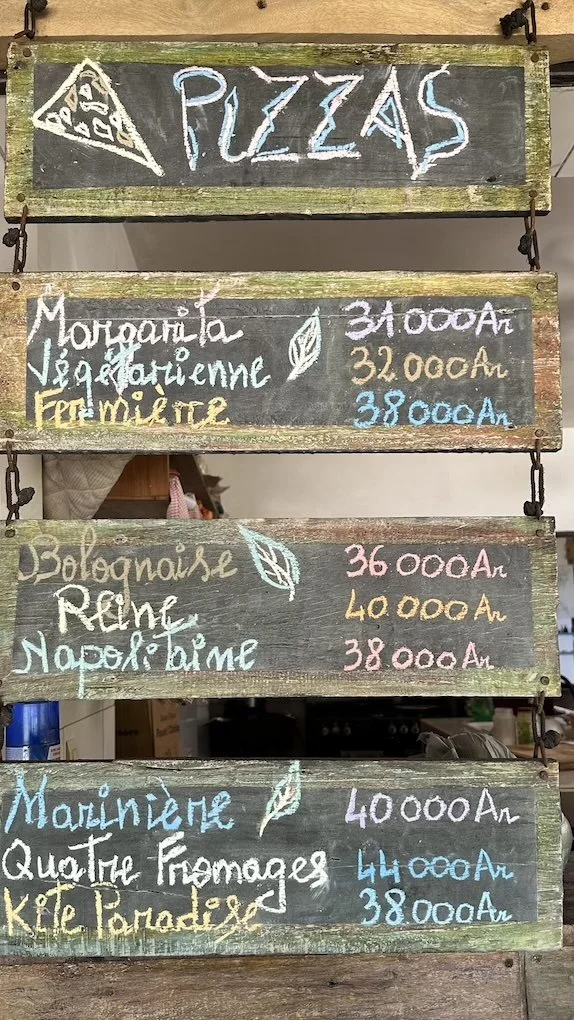 PIZZAS
Margarita 31 000 Ar
Végétarienne 32 000 Ar
Fermière 38 000 Ar
Bolognaise 36 000 Ar
Reine 40 000 Ar
Napolitaine 38 000 Ar
Marinière 40 000 Ar
Quatre Fromages 44 000 Ar
Kite Paradise 38 000 Ar